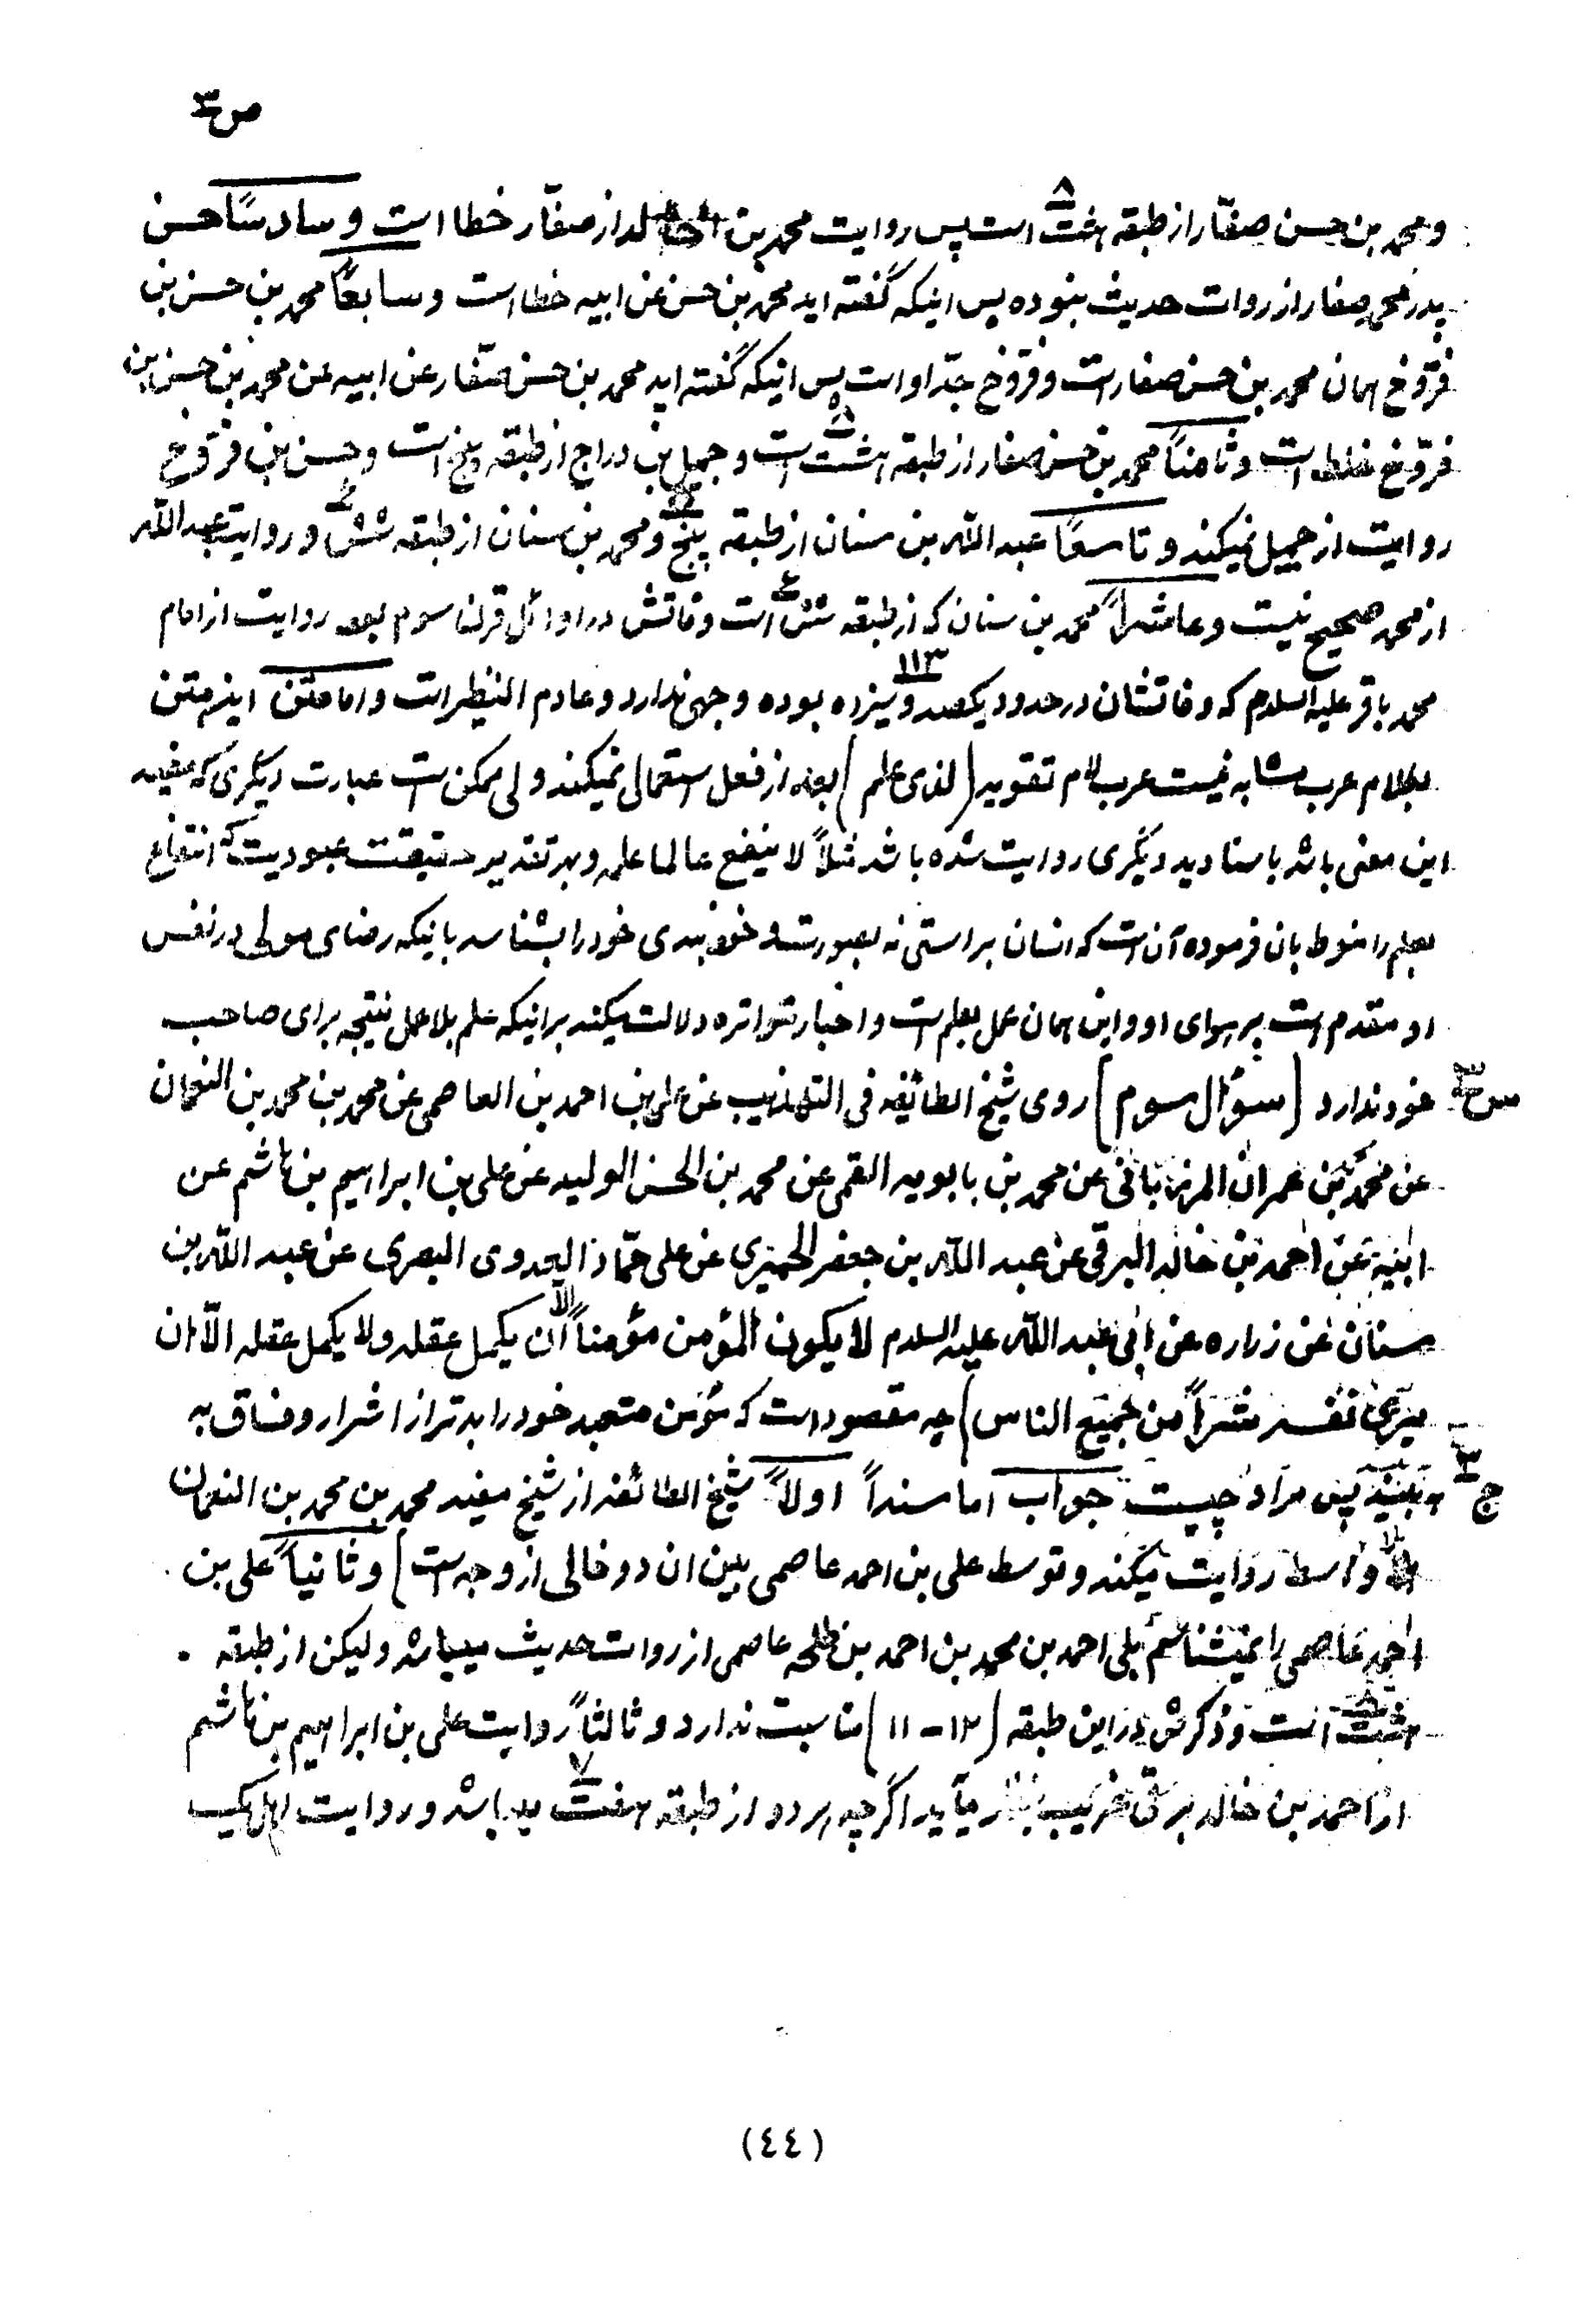 ص۳
و محمد بن حسن صفّار از طبقه هشت ۸ است پس روایت محمد بن خالد از صفّار خطا است و سادساً حسن
پدر محمد صفار از روات حدیث نبوده پس اینکه گفته اید محمد بن حسن عن ابیه خطا است و سابعاً محمد بن حسن بن
فرّوخ همان محمد بن حسن صفار است و فرّوخ جدّ او است پس اینکه گفته اید محمد بن حسن صفّار عن ابیه عن محمد بن حسن بن
فرّوخ غلط است و ثامناً محمد بن حسن صفار از طبقه هشت ۸ است و جمیل بن دراج از طبقه پنج است و حسن بن فرّوخ
روایت از جمیل نمیکند و تاسعاً عبد الله بن سنان از طبقه پنج و محمد بن سنان از طبقه شش ۶ و روایت عبد الله
از محمد صحیح نیست و عاشراً محمد بن سنان که از طبقه شش ۶ است وفاتش در اوائل قرن سوم بوده روایت از امام
محمد باقر علیه السلام که وفاتشان در حدود یکصد و سیزده ۱۱۳ بوده وجهی ندارد و عادم النیظر است و اما متن این متن
بکلام عرب مشابه نیست عرب لام تقویه (لذی علم) بعد از فعل استعمال نمیکند ولی ممکن است عبارت دیگری که مفید
این معنی باشد باسنادید دیگری روایت شده باشد مثلاً لا ینفع عالما علمه و بهر تقدیر حقیقت عبودیت که انتفاع
بعلم را منوط بان فرموده آن است که انسان براستی نه بصورت خود بندی خود را بشناسد بانیکه رضای مولی در نفس
او مقدم است بر هوای او و این همان عمل بعلم است و اخبار متواتره دلالت میکند برانیکه علم بلا عمل نتیجه برای صاحب
س۳ خود ندارد (سؤال سوم) روی شیخ الطائفه فی التهذیب عن علی بن احمد بن العاصمی عن محمد بن محمد بن النعمان
عن محمد بن عمران المرزبانی عن محمد بن بابویه القمی عن محمد بن الحسن الولید عن علی بن ابراهیم بن هاشم عن
ابیه عن احمد بن خالد البرقی عن عبد الله بن جعفر الحمیری عن علی حمّاد العدوی البصری عن عبد الله بن
سنان عن زراره عن ابی عبد الله علیه السلام لا یکون المؤمن مؤمناً الا ان یکمل عقله ولا یکمل عقله الّا ان
یری نفسه شراً من جمیع الناس) چه مقصود است که مؤمن متعبد خود را بدتر از اشرار و فساق به
ج۳ بیند پس مراد چیست جواب اما سنداً اولاً شیخ الطائفه از شیخ مفید محمد بن محمد بن النعمان
بلا واسطه روایت میکند و توسط علی بن احمد عاصمی بین ان دو خالی از وجه است) و ثانیاً علی بن
احمد عاصمی را نمیشناسم بلی احمد بن محمد بن احمد بن طلحه عاصمی از روات حدیث میباشد ولیکن از طبقه
هشت ۸ است و ذکرش در این طبقه (۱۲ - ۱۱) مناسبت ندارد و ثالثاً روایت علی بن ابراهیم بن هاشم
از احمد بن خالد برقی غریب بنظر میآید اگر چه هر دو از طبقه هفت ۷ میباشد و روایت اهل یک
(٤٤)